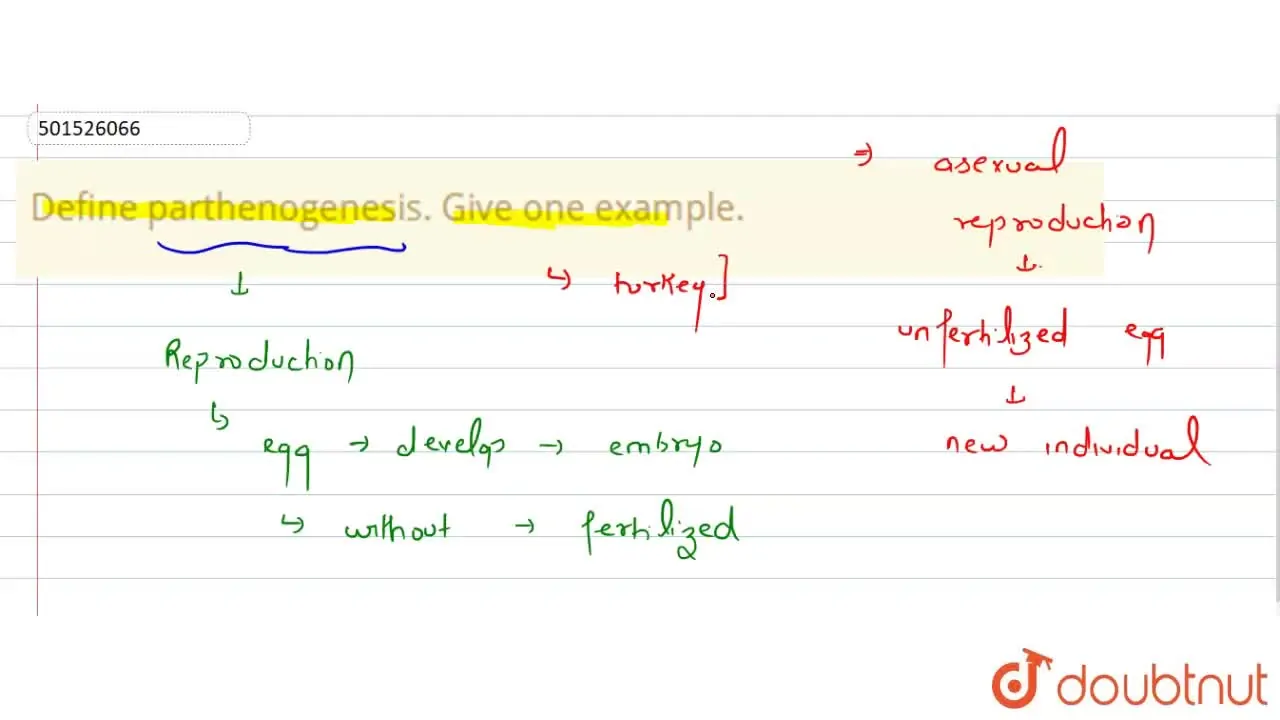 501526066
Define parthenogenesis. Give one example.
↳ turkey]
↓
Reproduction
↳ egg → develops → embryo
↳ without → fertilized
⇒ asexual
reproduction
↓
unfertilized egg
↓
new individual
doubtnut